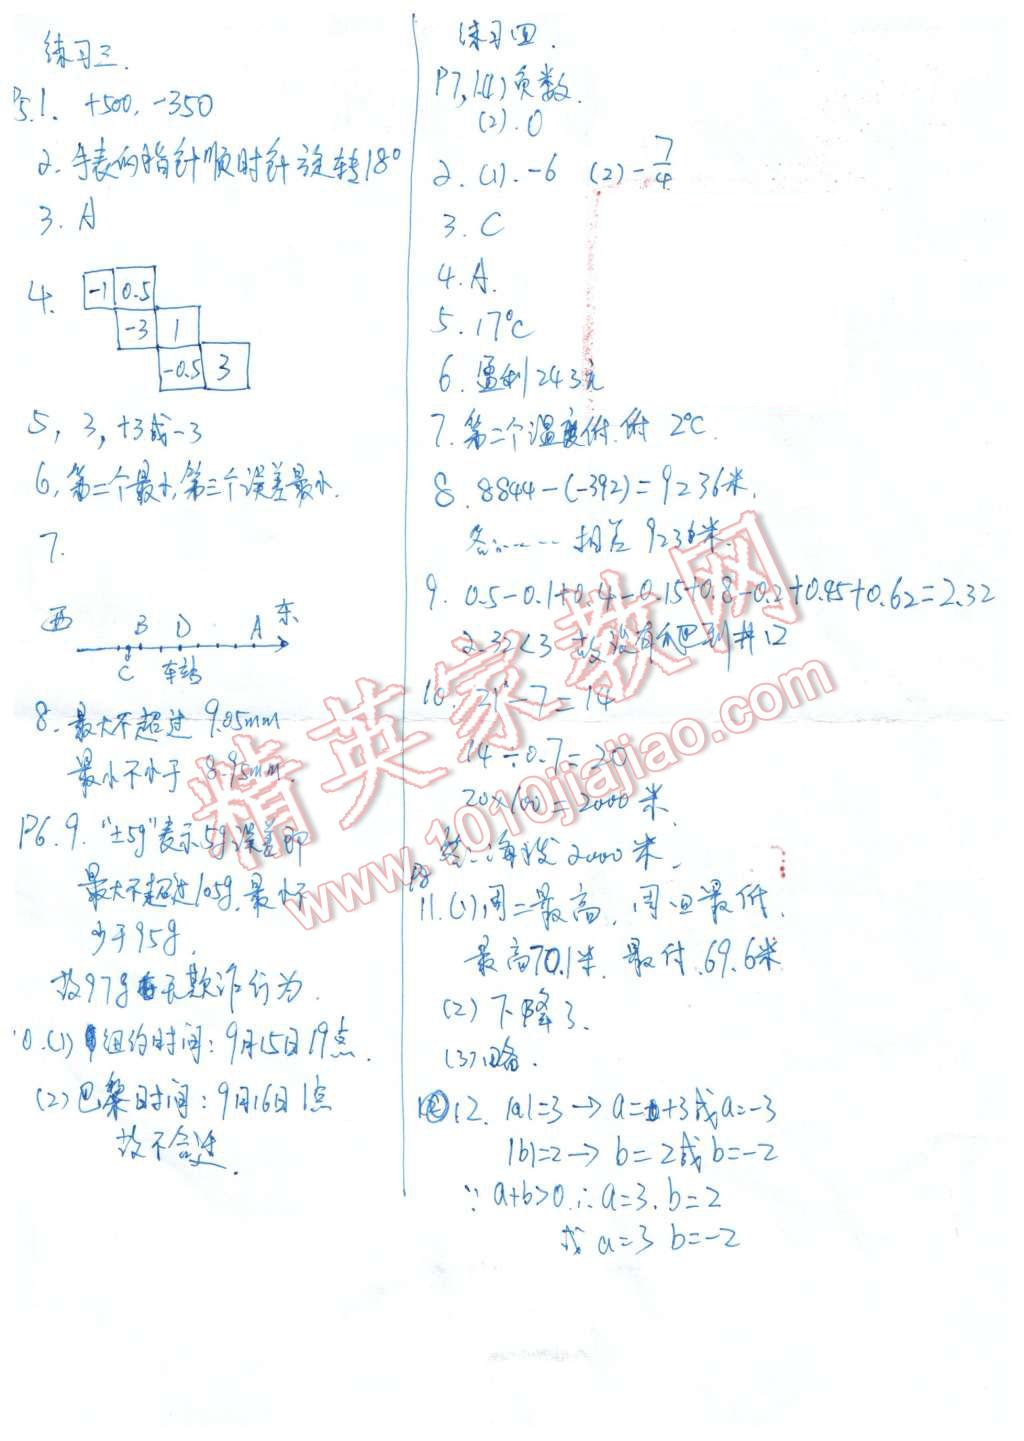 练习三.
P5.1. +500, -350
2. 手表的指针顺时针旋转18°
3. A
4. -1 0.5
-3 1
-0.5 3
5, 3, +3或-3
6, 第二个最小, 第三个误差最小.
7.
西 B D A 东
C 车站
8. 最大不超过 9.05mm
最小不小于 8.95mm.
P6.9. "±5g"表示5g误差即
最大不超过105g, 最小不
少于95g.
故97g 无欺诈行为.
0.(1) 纽约时间: 9月15日19点.
(2) 巴黎时间: 9月16日1点
故不合适.
练习四.
P7,1.(1) 负数.
(2). 0
2. (1). -6 (2) -7/4
3. C
4. A.
5. 17°C
6. 盈利243元
7. 第二个温度低. 低 2°C.
8. 8844-(-392)=9236米.
答:…… 相差 9236米.
9. 0.5-0.1+0.4-0.15+0.8-0.2+0.45+0.62=2.32
2.32<3 故没有爬到井口
10. 21-7=14
14÷0.7=20
20×100=2000米.
答:海拔2000米.
P8
11.(1)周二最高, 周日最低.
最高70.1米. 最低.69.6米
(2) 下降了.
(3)略.
12. |a|=3→a=+3或a=-3
|b|=2→b=2或b=-2
∵a+b>0.∴a=3.b=2
或 a=3 b=-2
精英家教网
www.1010jiajiao.com